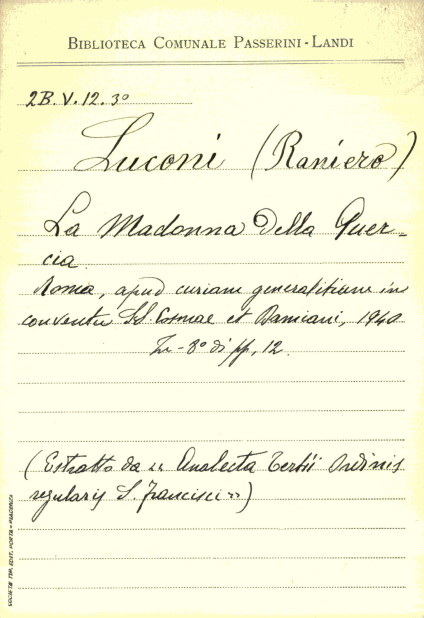 BIBLIOTECA COMUNALE PASSERINI - LANDI
2B. V. 12. 3º
Luconi (Raniero)
La Madonna della Quer-
cia.
Roma, apud curiam generalitiam in
conventu SS. Cosmae et Damiani, 1940
In - 8º di pp, 12.
(Estratto da "Analecta Tertii Ordinis
regularis S. Francisci")
SOCIETÀ TIP. EDIT. PORTA - PIACENZA